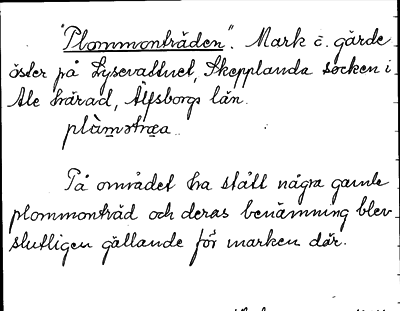 "Plommonträden". Mark c. gärde
öster på Lysevattnet, Skepplanda socken i
Ale härad, Älfsborgs län.
plàmətræa
På området ha stått några gamla
plommonträd och deras benämning blev
slutligen gällande för marken där.